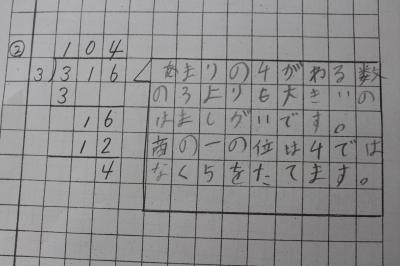 ② 104
3)316
3
16
12
4
あまりの4がわる数
の3よりも大きいの
はまちがいです。
商の一の位は4では
なく5をたてます。